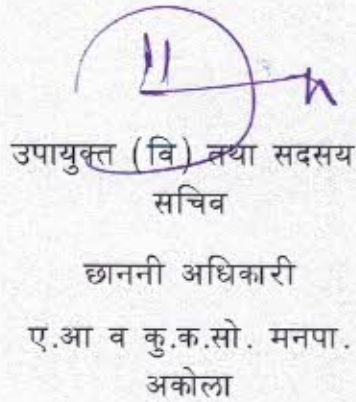 उपायुक्त (वि) तथा सदसय
सचिव
छाननी अधिकारी
ए.आ व कु.क.सो. मनपा.
अकोला